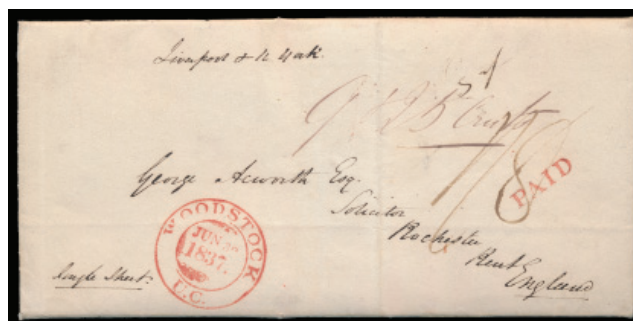 Liverpool & N. York.
9 & 25
1/8
PAID
George Acworth Esq.
Solicitor
Rochester
Kent
England
WOODSTOCK
JUN
1837.
U.C.
Single Sheet.